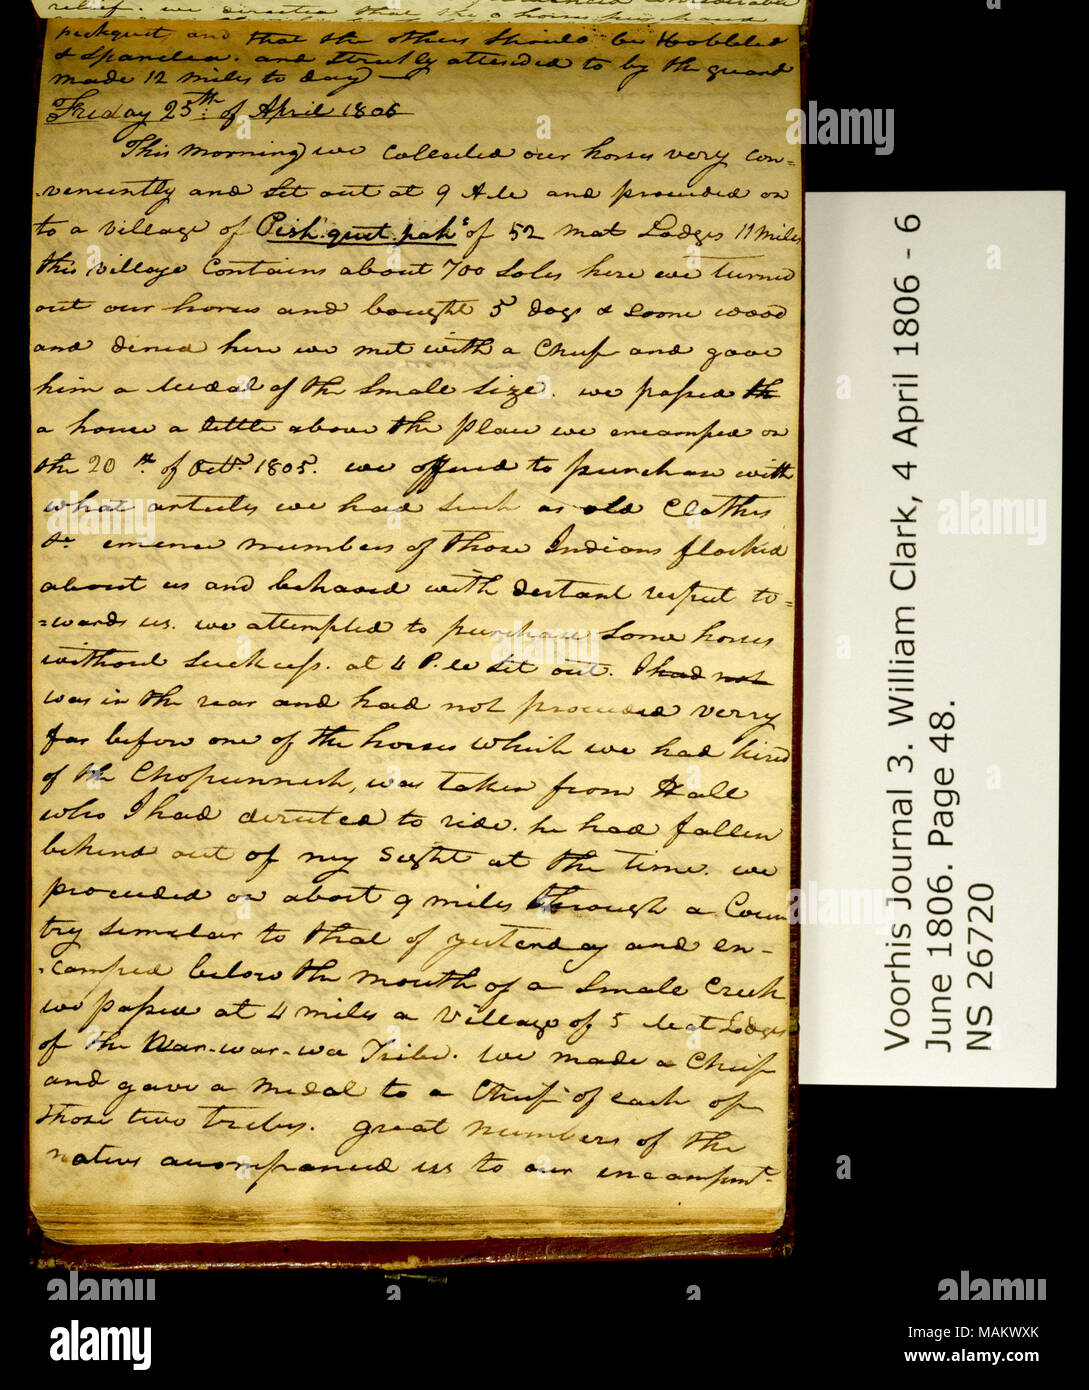 relief. we directed that the 3 horses purchased
peckquit, and that the others should be Hobbled
& Spancled. and strictly attended to by the guard
made 12 miles to day—
Friday 25th of April 1806
This morning we collected our horses very con=
=veniently and Set out at 9 A M and proceeded on
to a village of Pish-quit-pahs of 52 mat Lodges 11 miles
this village Contains about 700 Soles here we turned
out our horses and bought 5 dogs & Some wood
and dined here we met with a Chief and gave
him a Medal of the Small Size. we passed th
a house a little above the place we encamped on
the 20th of Octr. 1805. we offered to purchase with
what articles we had Such as old Clothes
&c emence numbers of those Indians flocked
about us and behaved with distant respect to=
=wards us. we attempted to purchase Some horses
without Suckcess. at 4 P. M Set out. I had not
was in the rear and had not proceeded verry
far before one of the horses which we had hired
of the Chopunnish, was taken from Hall
who I had directed to ride. he had fallen
behind out of my Sight at the time. we
proceeded on about 9 miles through a Coun
try Similar to that of yesterday and en-
-camped below the mouth of a Small Creek
we passed at 4 miles a Village of 5 Mat Lodges
of the War-war-wa Tribe. We made a Chief
and gave a medal to a Chief of each of
those two tribes. great numbers of the
natives accompanied us to our encampmt.
Voorhis Journal 3. William Clark, 4 April 1806 - 6
June 1806. Page 48.
NS 26720
alamy
Image ID: MAKWXK
www.alamy.com